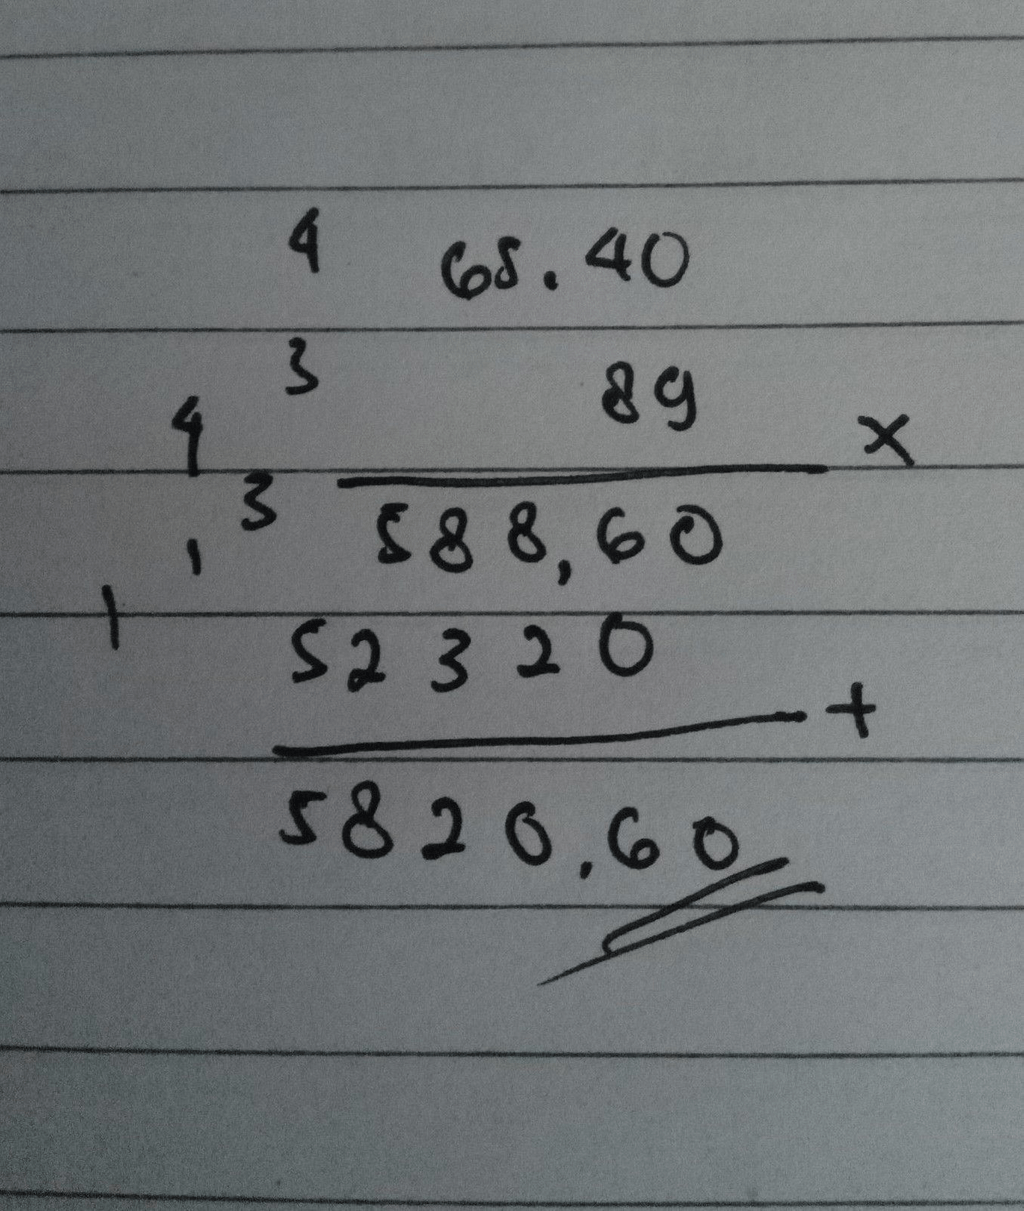 4 65.40
3 89 x
4
3 588,60
1
1 52320 +
5820.60